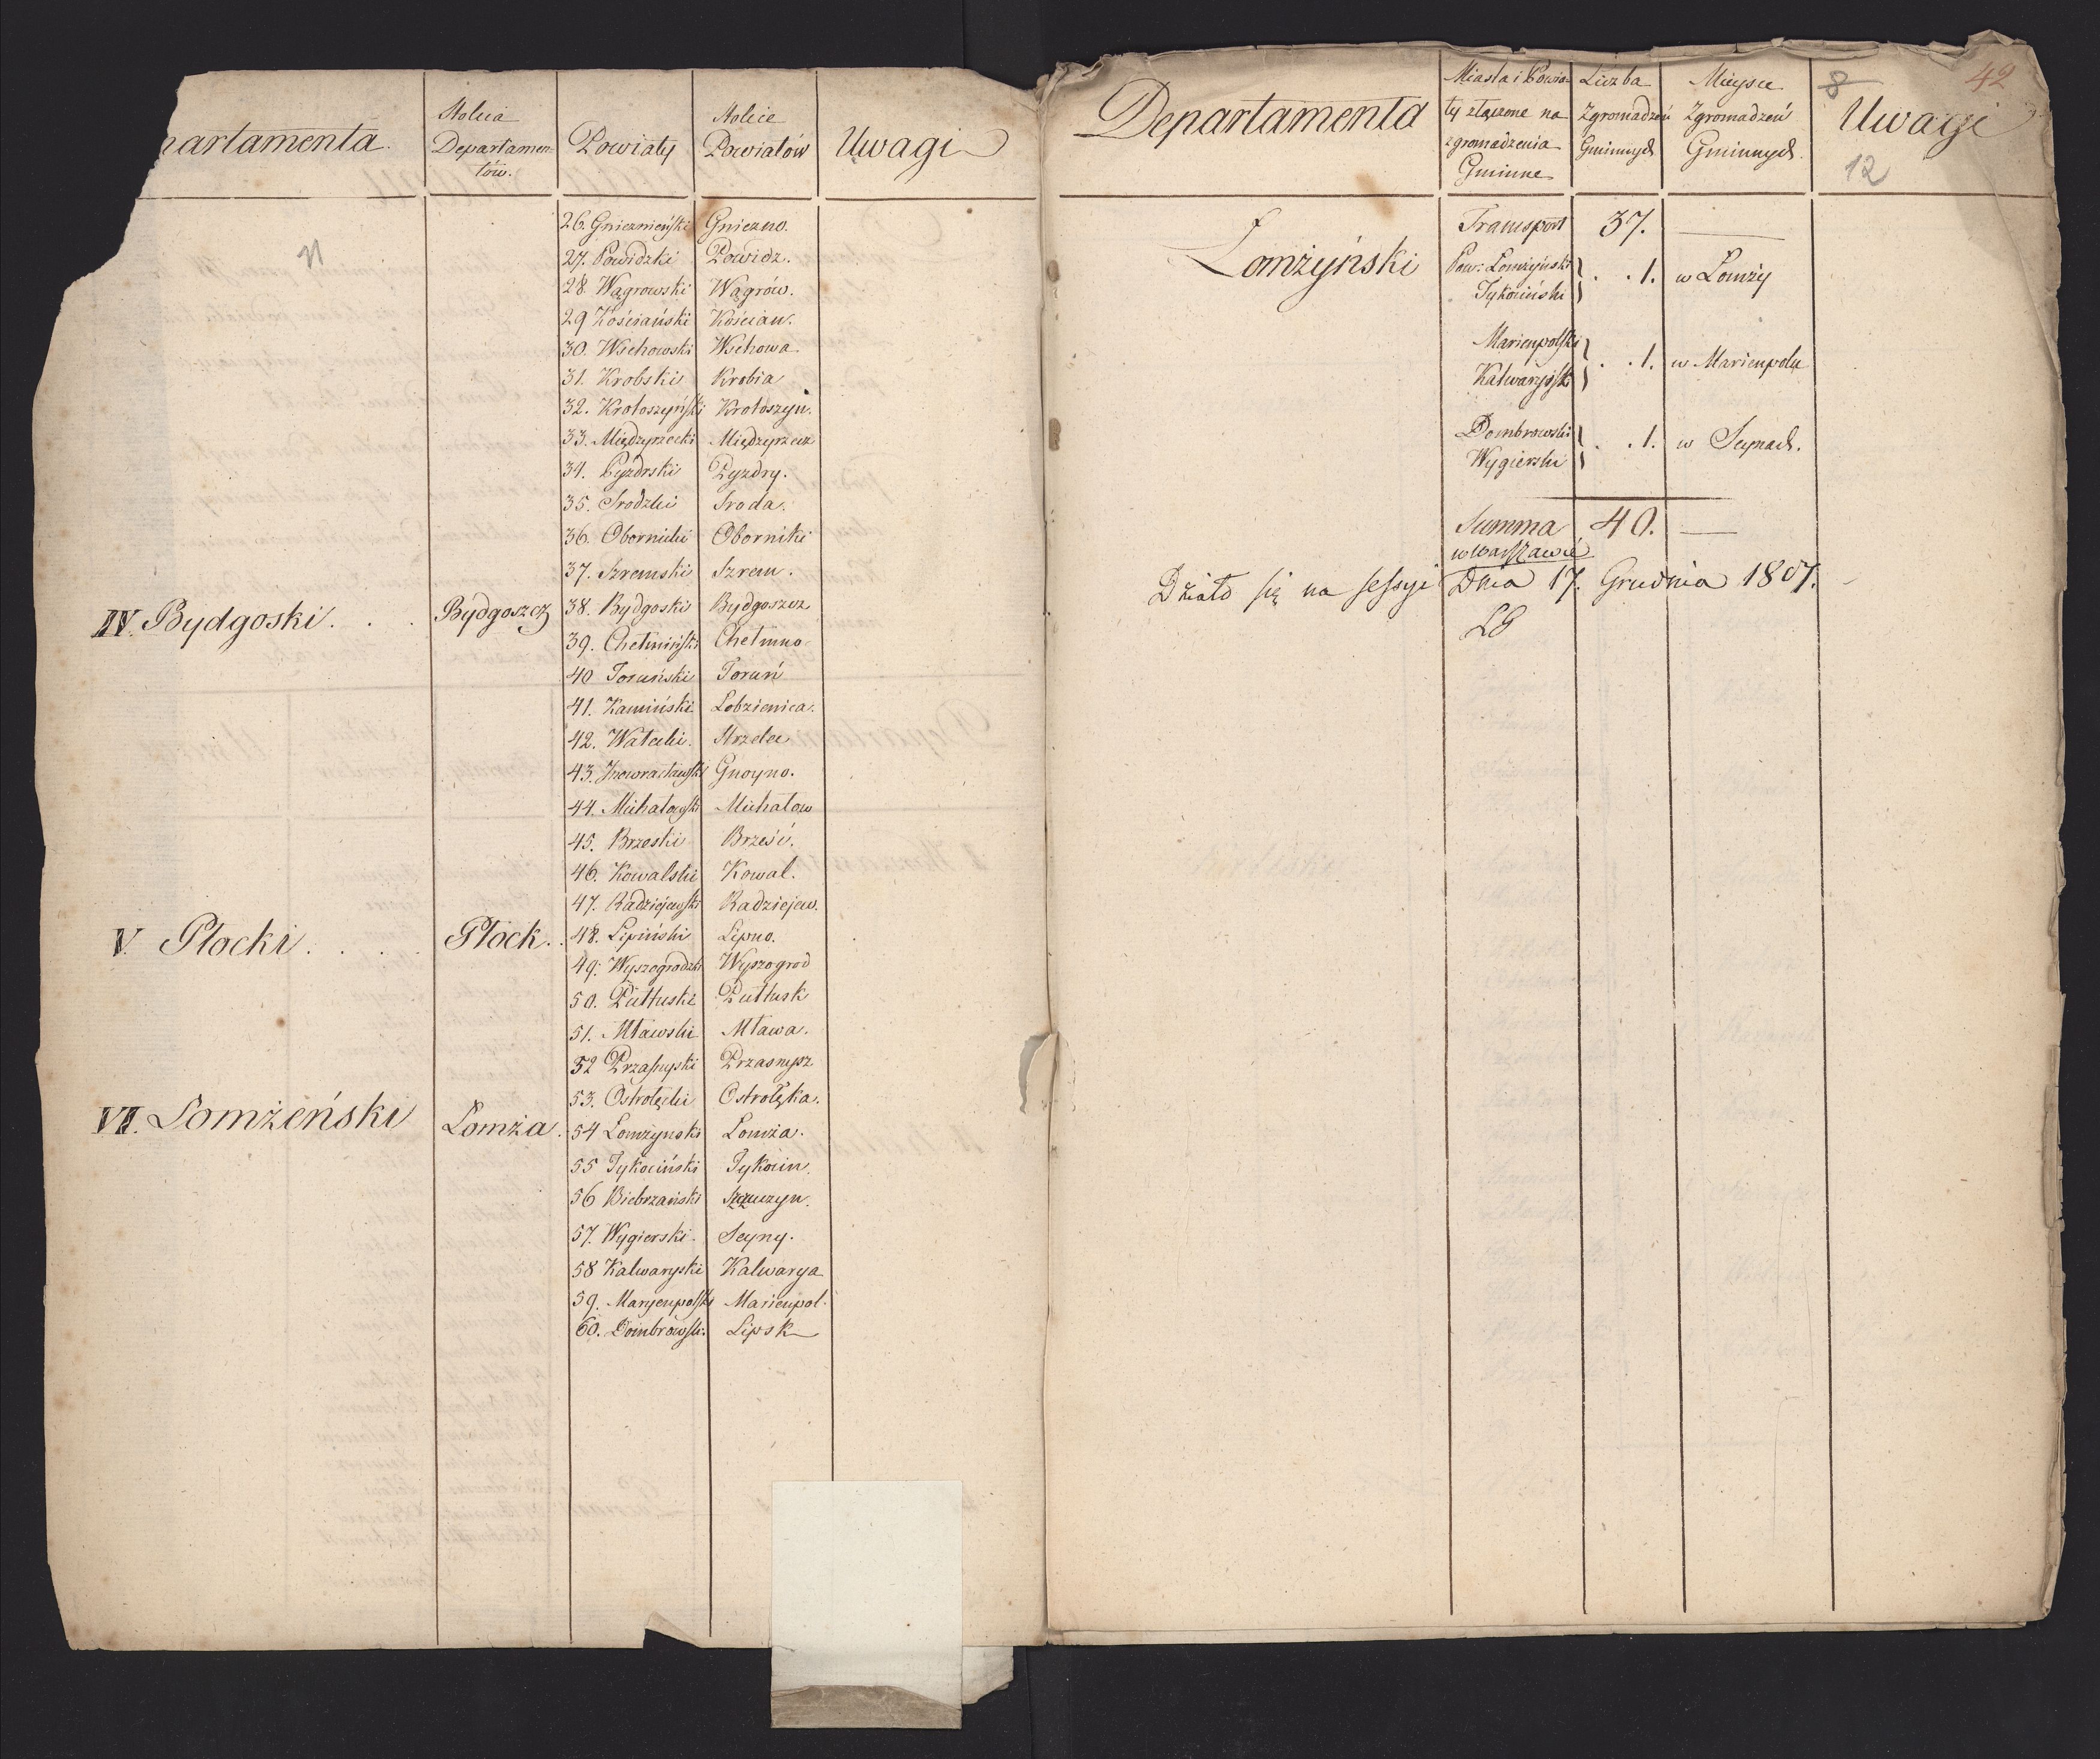 partamenta.
Stolica
Departamen-
tów.
Powiaty
Stolice
Powiatów
Uwagi
26. Gnieznieński Gniezno.
27. Powidzki Powidz.
28. Wągrowski Wągrów.
29 Kościański Kościan.
30. Wschowski Wschowa.
31. Krobski Krobia
32. Krotoszyński Krotoszyn.
33. Międzyrzecki Międzyrzecz
34. Pyzdrski Pyzdry.
35. Srodzki Sroda.
36. Obornicki Oborniki
37. Szremski Szrem.
IV. Bydgoski. . . Bydgoszcz 38. Bydgoski Bydgoszcz
39. Chełmiński Chełmno
40 Toruński Toruń
41. Kamiński Lobzienica.
42. Wałecki. Strzelce
43. Inowracławski Gnoyno.
44. Michałowski Michałow
45. Brzeski Brześć.
46. Kowalski Kowal.
47. Radziejewski Radziejew.
V. Płocki. . . . Płock. . 48. Lipiński Lipno.
49. Wyszogrodzki Wyszogrod
50. Pułtuski Pułtusk
51. Mławski Mława.
52 Przasnyski Przasnysz
53. Ostrołęcki Ostrołęka.
VI. Lomżeński Lomża. 54 Lomżynski Lomża.
55 Tykociński Tykocin.
56 Biebrzański Szczuczyn.
57. Wygierski. Seyny.
58 Kalwaryski Kalwarya
59. Maryenpolski Marienpol.
60. Dombrowski. Lipsk
8
42
12
Departamenta
Miasta i Powia-
ty złączone na
zgromadzenia
Gminne
Liczba
Zgromadzeń
Gminnych
Mieysce
Zgromadzeń
Gminnych.
Uwagi
Transport 37.
Lomżyński
Pow: Lomżyński
Tykociński . . 1. w Lomży
Marienpolski
Kalwaryjski . . 1. w Marienpolu
Dombrowski
Wygierski . . 1. w Seynach.
Summa 40.
w Warszawie
Działo się na sessyi Dnia 17. Grudnia 1807.